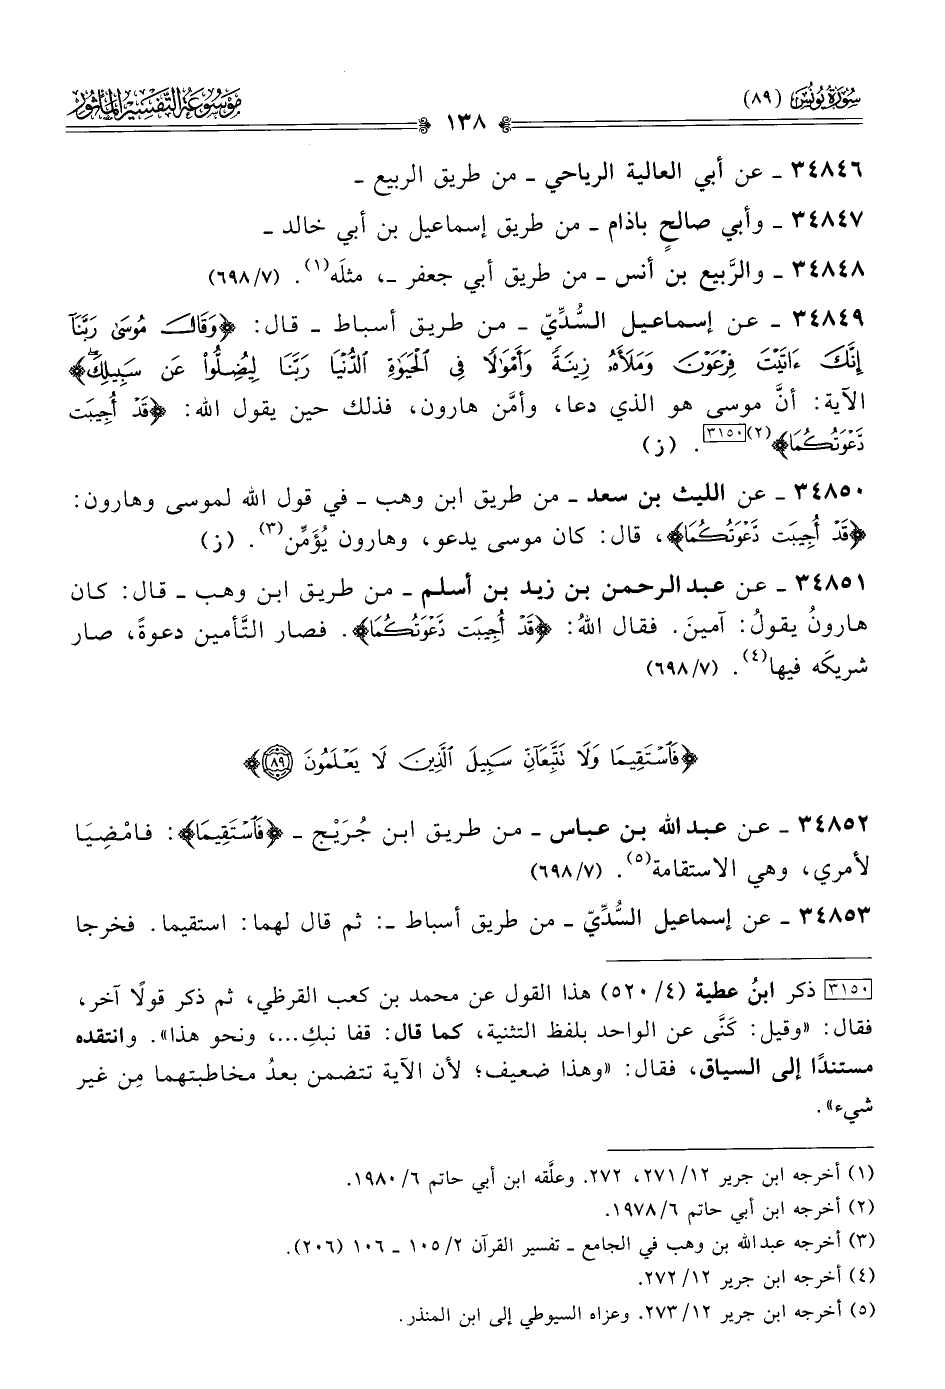 سُورَةُ يُونُسَ (٨٩)
١٣٨
مَوْسُوعَةُ التَّفْسِيرِ المَأْثُورِ
٣٤٨٤٦ ـ عن أبي العالية الرياحي ـ من طريق الربيع ـ
٣٤٨٤٧ ـ وأبي صالحٍ باذام ـ من طريق إسماعيل بن أبي خالد ـ
٣٤٨٤٨ ـ والرَّبيع بن أنس ـ من طريق أبي جعفر ـ، مثلَه(١). (٧/ ٦٩٨)
٣٤٨٤٩ ـ عن إسماعيل السُّدِّيّ ـ من طريق أسباط ـ قال: ﴿وَقَالَ مُوسَىٰ رَبَّنَآ
إِنَّكَ ءَاتَيْتَ فِرْعَوْنَ وَمَلَأَهُۥ زِينَةً وَأَمْوَٰلًا فِى ٱلْحَيَوٰةِ ٱلدُّنْيَا رَبَّنَا لِيُضِلُّوا۟ عَن سَبِيلِكَ﴾
الآية: أنَّ موسى هو الذي دعا، وأمَّن هارون، فذلك حين يقول الله: ﴿قَدْ أُجِيبَت
دَّعْوَتُكُمَا﴾(٢)[٣١٥٠]. (ز)
٣٤٨٥٠ ـ عن الليث بن سعد ـ من طريق ابن وهب ـ في قول الله لموسى وهارون:
﴿قَدْ أُجِيبَت دَّعْوَتُكُمَا﴾، قال: كان موسى يدعو، وهارون يُؤَمِّن(٣). (ز)
٣٤٨٥١ ـ عن عبدالرحمن بن زيد بن أسلم ـ من طريق ابن وهب ـ قال: كان
هارونُ يقولُ: آمينَ. فقال اللهُ: ﴿قَدْ أُجِيبَت دَّعْوَتُكُمَا﴾. فصار التَّأمين دعوةً، صار
شريكَه فيها(٤). (٧/ ٦٩٨)
﴿فَٱسْتَقِيمَا وَلَا تَتَّبِعَآنِّ سَبِيلَ ٱلَّذِينَ لَا يَعْلَمُونَ ٨٩﴾
٣٤٨٥٢ ـ عن عبدالله بن عباس ـ من طريق ابن جُرَيْج ـ ﴿فَٱسْتَقِيمَا﴾: فامْضِيَا
لأمري، وهي الاستقامة(٥). (٧/ ٦٩٨)
٣٤٨٥٣ ـ عن إسماعيل السُّدِّيّ ـ من طريق أسباط ـ: ثم قال لهما: استقيما. فخرجا
[٣١٥٠] ذكر ابنُ عطية (٤/ ٥٢٠) هذا القول عن محمد بن كعب القرظي، ثم ذكر قولًا آخر،
فقال: «وقيل: كَنَّى عن الواحد بلفظ التثنية، كما قال: قفا نبكِ...، ونحو هذا». وانتقده
مستندًا إلى السياق، فقال: «وهذا ضعيف؛ لأن الآية تتضمن بعدُ مخاطبتهما مِن غير
شيء».
(١) أخرجه ابن جرير ١٢/ ٢٧١، ٢٧٢. وعلَّقه ابن أبي حاتم ٦/ ١٩٨٠.
(٢) أخرجه ابن أبي حاتم ٦/ ١٩٧٨.
(٣) أخرجه عبدالله بن وهب في الجامع ـ تفسير القرآن ٢/ ١٠٥ ـ ١٠٦ (٢٠٦).
(٤) أخرجه ابن جرير ١٢/ ٢٧٢.
(٥) أخرجه ابن جرير ١٢/ ٢٧٣. وعزاه السيوطي إلى ابن المنذر.